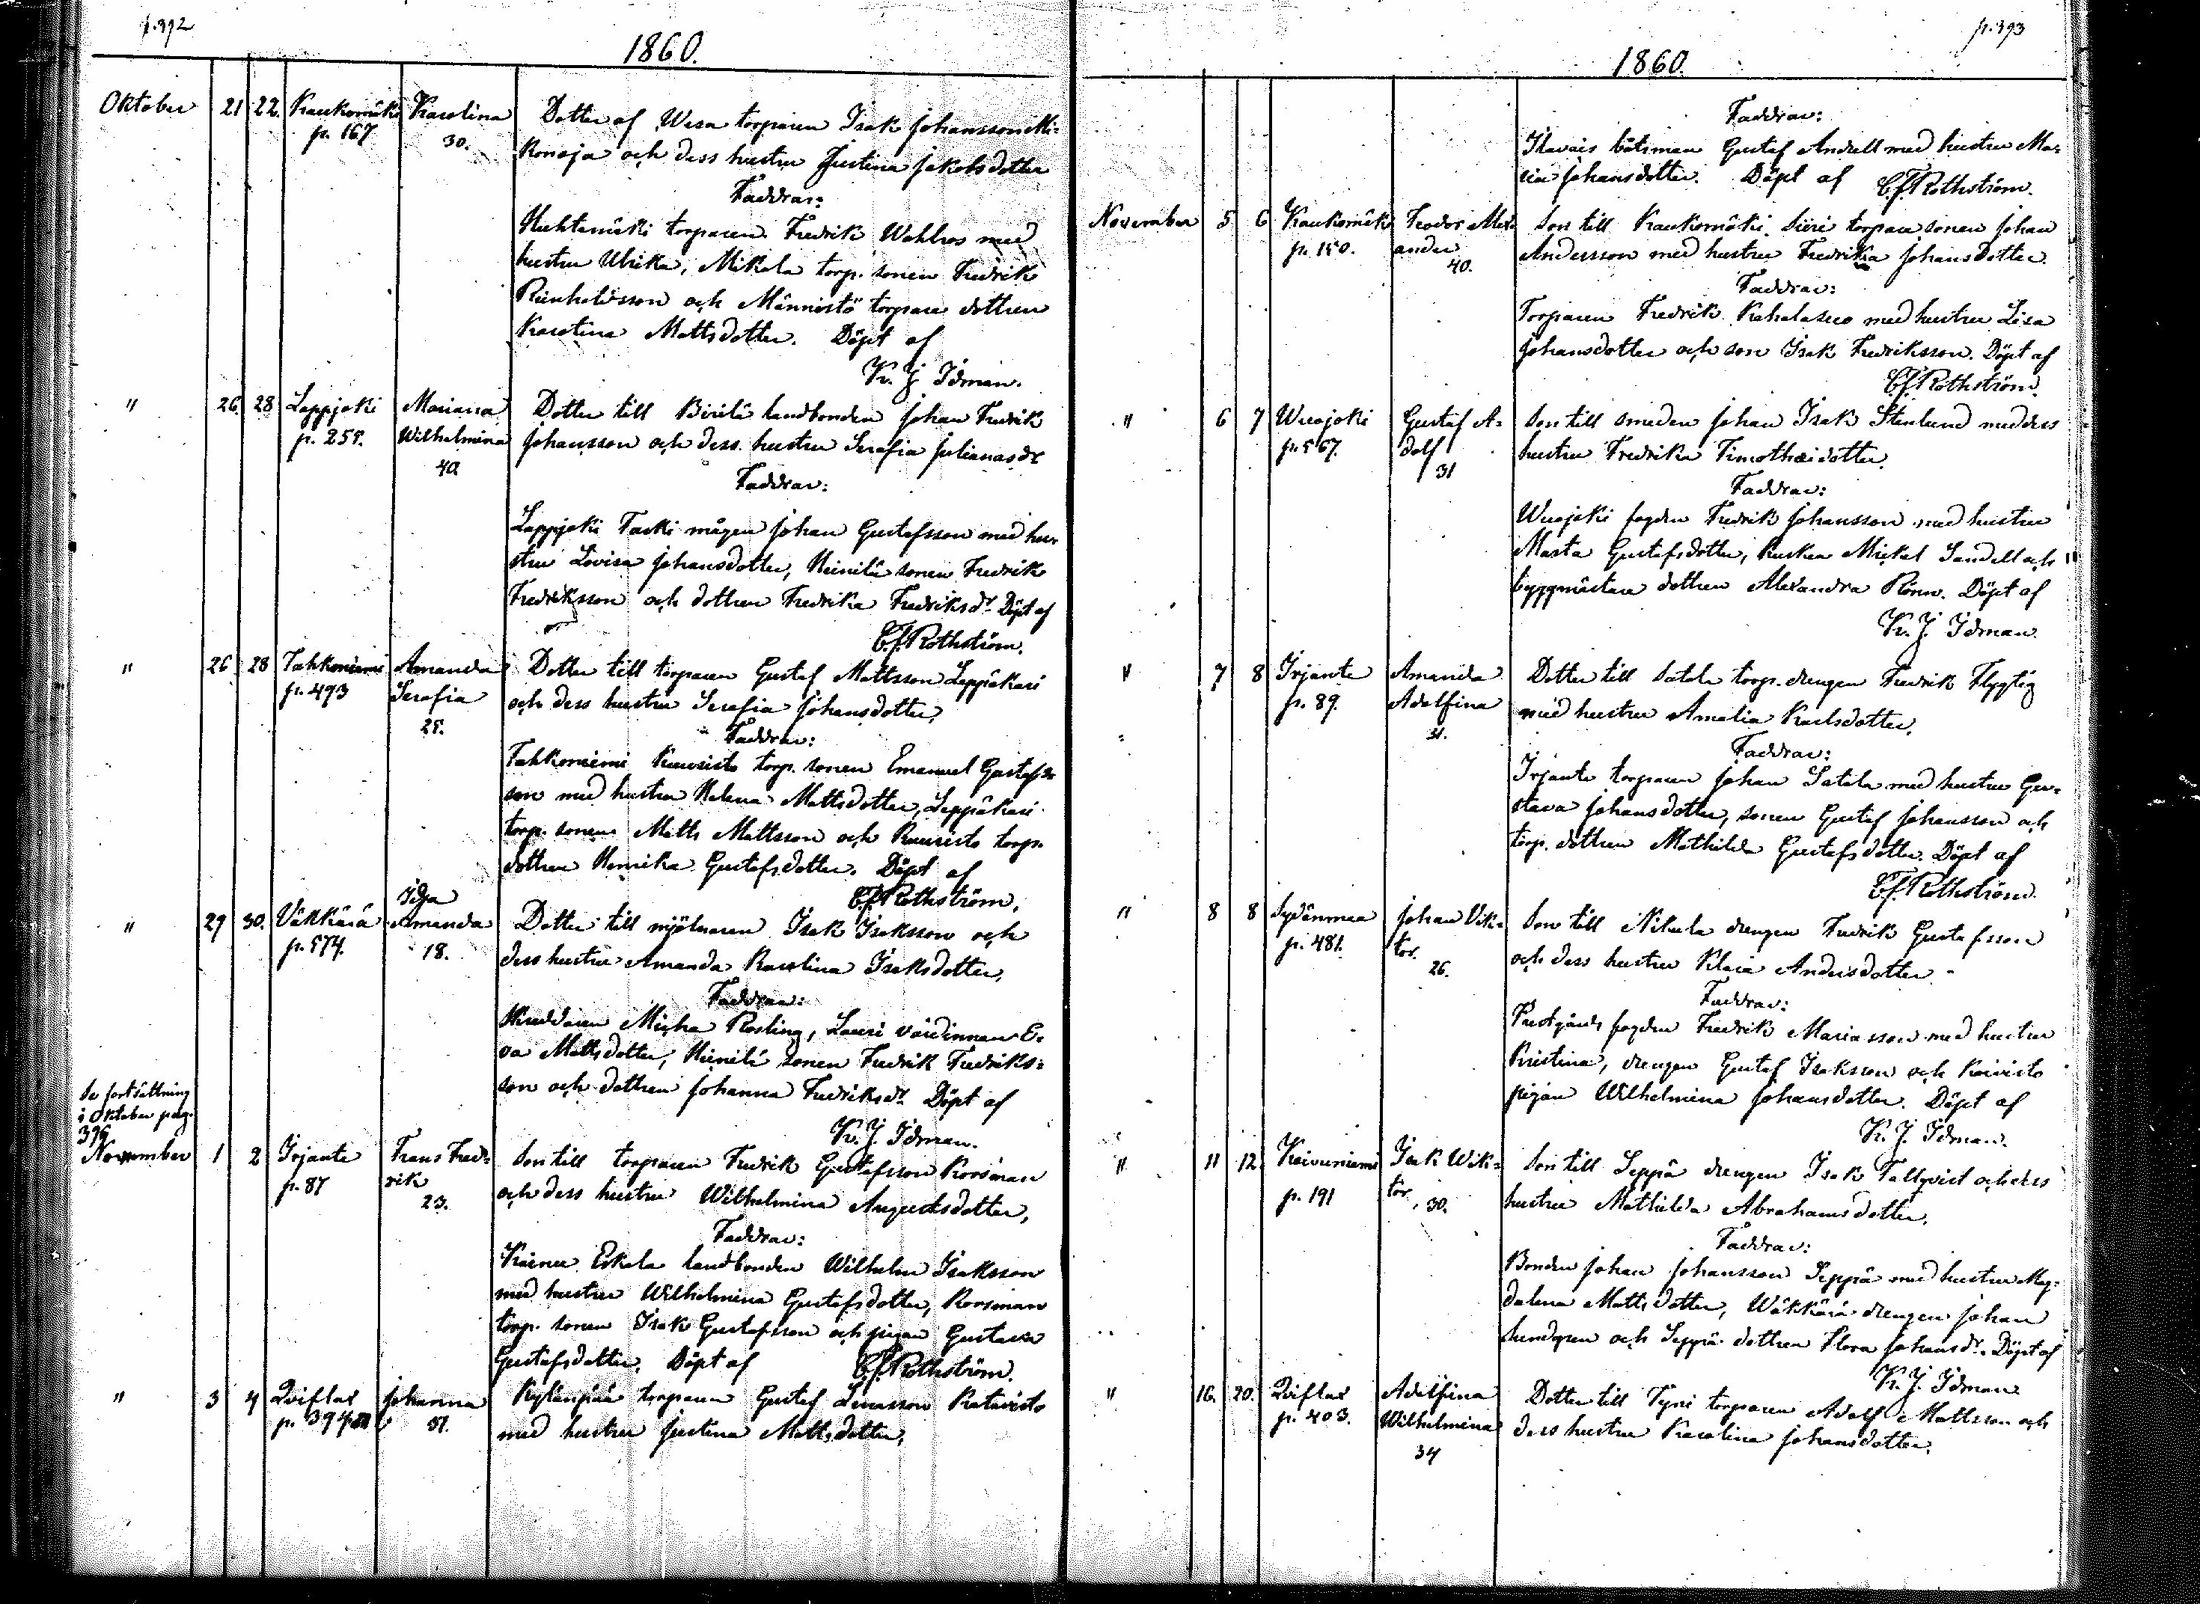 p. 392
1860.
Oktober 21 22. Kaukomäki p. 167 Karolina 30.
Dotter af Wesa torparen Isak Johansson
och dess hustru Justina Jakobsdotter
Faddrar:
Huhtamäki torparen Fredrik Wahlros med
hustru Ulrika, Mikola torp. sonen Fredrik
och Männistö torpare dottren
Karolina Mattsdotter. Döpt af
K. J. Idman.
" 26 28 Lappjoki p. 251. Mariana Wilhelmina 40
Dotter till Birilä landbonden Johan Fredrik
Johansson och dess hustru Serafia Julianasdr
Faddrar:
Lappjoki Taski mågen Johan Gustafsson med hu-
stru Lovisa Johansdotter, Heinilä sonen Fredrik
Fredriksson och dottren Fredrika Fredriksdr Döpt af
C.f. Rothström.
" 26 28 Tahkoniemi p. 493 Amanda Serafia 25.
Dotter till torparen Gustaf Mattsson Leppäkari
och dess hustru Serafia Johansdotter,
Faddrar:
Tahkoniemi Kuusisto torp. sonen Emanuel Gustafs-
son med hustru Helena Mattsdotter, Leppäkari
torp. sonen Matts Mattsson och Kuusisto torp.
dottren Henrika Gustafsdotter. Döpt af
C.f. Rothström.
" 29 30. Väkkärä p. 574. Ida Amanda 18.
Dotter till mjölnaren Isak Isaksson och
dess hustru Amanda Karolina Isaksdotter,
Faddrar:
Skreddaren Micha Rosling, Lauri värdinnan E-
va Mattsdotter, Heinilä sonen Fredrik Fredriks-
son och dottren Johanna Fredriksdr. Döpt af
K. J. Idman.
Se fortsättning
i Oktober pag.
396
November 1 2 Irjanta p. 87 Frans Fred-
rik 23.
Son till torparen Fredrik Gustafsson Korsman
och dess hustru Wilhelmina Augustsdotter,
Faddrar:
Eskola landbonden Wilhelm Isaksson
med hustru Wilhelmina Gustafsdotter, Korsman
torp. sonen Isak Gustafsson och pigan Gustava
Gustafsdotter. Döpt af C.f. Rothström.
" 3 4 Qviflax p. 394 Johanna 31.
Kylänpää torparen Gustaf Ratavisto
med hustru Justina Mattsdotter,
p. 393
1860.
Faddrar:
båtsman Gustaf Andell med hustru Ma-
ria Johansdotter. Döpt af C.f. Rothström.
November 5 6 Kaukomäki p. 150. Feodor Alex-
ander 40.
Son till Kaukomäki Siiri torpare sonen Johan
Andersson med hustru Fredrika Johansdotter
Faddrar:
Torparen Fredrik Kahalasuo med hustru Lisa
Johansdotter och son Isak Fredriksson. Döpt af
C.f. Rothström.
" 6 7 Wuojoki p. 567. Gustaf A-
dolf 31
Son till smeden Johan Isak Stenlund med dess
hustru Fredrika Timotheidotter.
Faddrar:
Wuojoki fogden Fredrik Johansson med hustru
Maria Gustafsdotter, kusken Mickel Sandell och
byggmästare dottren Alexandra Rönn. Döpt af
K. J. Idman.
" 7 8 Irjanta p. 89. Amanda Adolfina 31.
Dotter till Satola torp. drengen Fredrik Flygtig
med hustru Amalia Karlsdotter.
Faddrar:
Irjanta torparen Johan Satola med hustru Gu-
stava Johansdotter, sonen Gustaf Johansson och
torp. dottren Mathilda Gustafsdotter. Döpt af
C.f. Rothström.
" 8 8 Sydänmaa p. 481. Johan Vik-
tor. 26.
Son till Nikula drengen Fredrik Gustafsson
och dess hustru Klara Andersdotter
Faddrar:
Prestgårds fogden Fredrik Mariasson med hustru
Kristina, drengen Gustaf Isaksson och Koivisto
pigan Wilhelmina Johansdotter. Döpt af
K. J. Idman.
" 11 12 Koivuniemi p. 191 Isak Wik-
tor. 30.
Son till Seppä drengen Isak Tallqvist och dess
hustru Mathilda Abrahamsdotter,
Faddrar:
Bonden Johan Johansson Seppä med hustru Mag-
dalena Mattsdotter, Wäkkärä drengen Johan
Lundgren och Seppä dottren Flora Johansdr. Döpt af
K. J. Idman
" 16. 20. Qviflax p. 403. Adolfina Wilhelmina 34
Dotter till Tyni torparen Adolf Mattsson och
dess hustru Karolina Johansdotter.